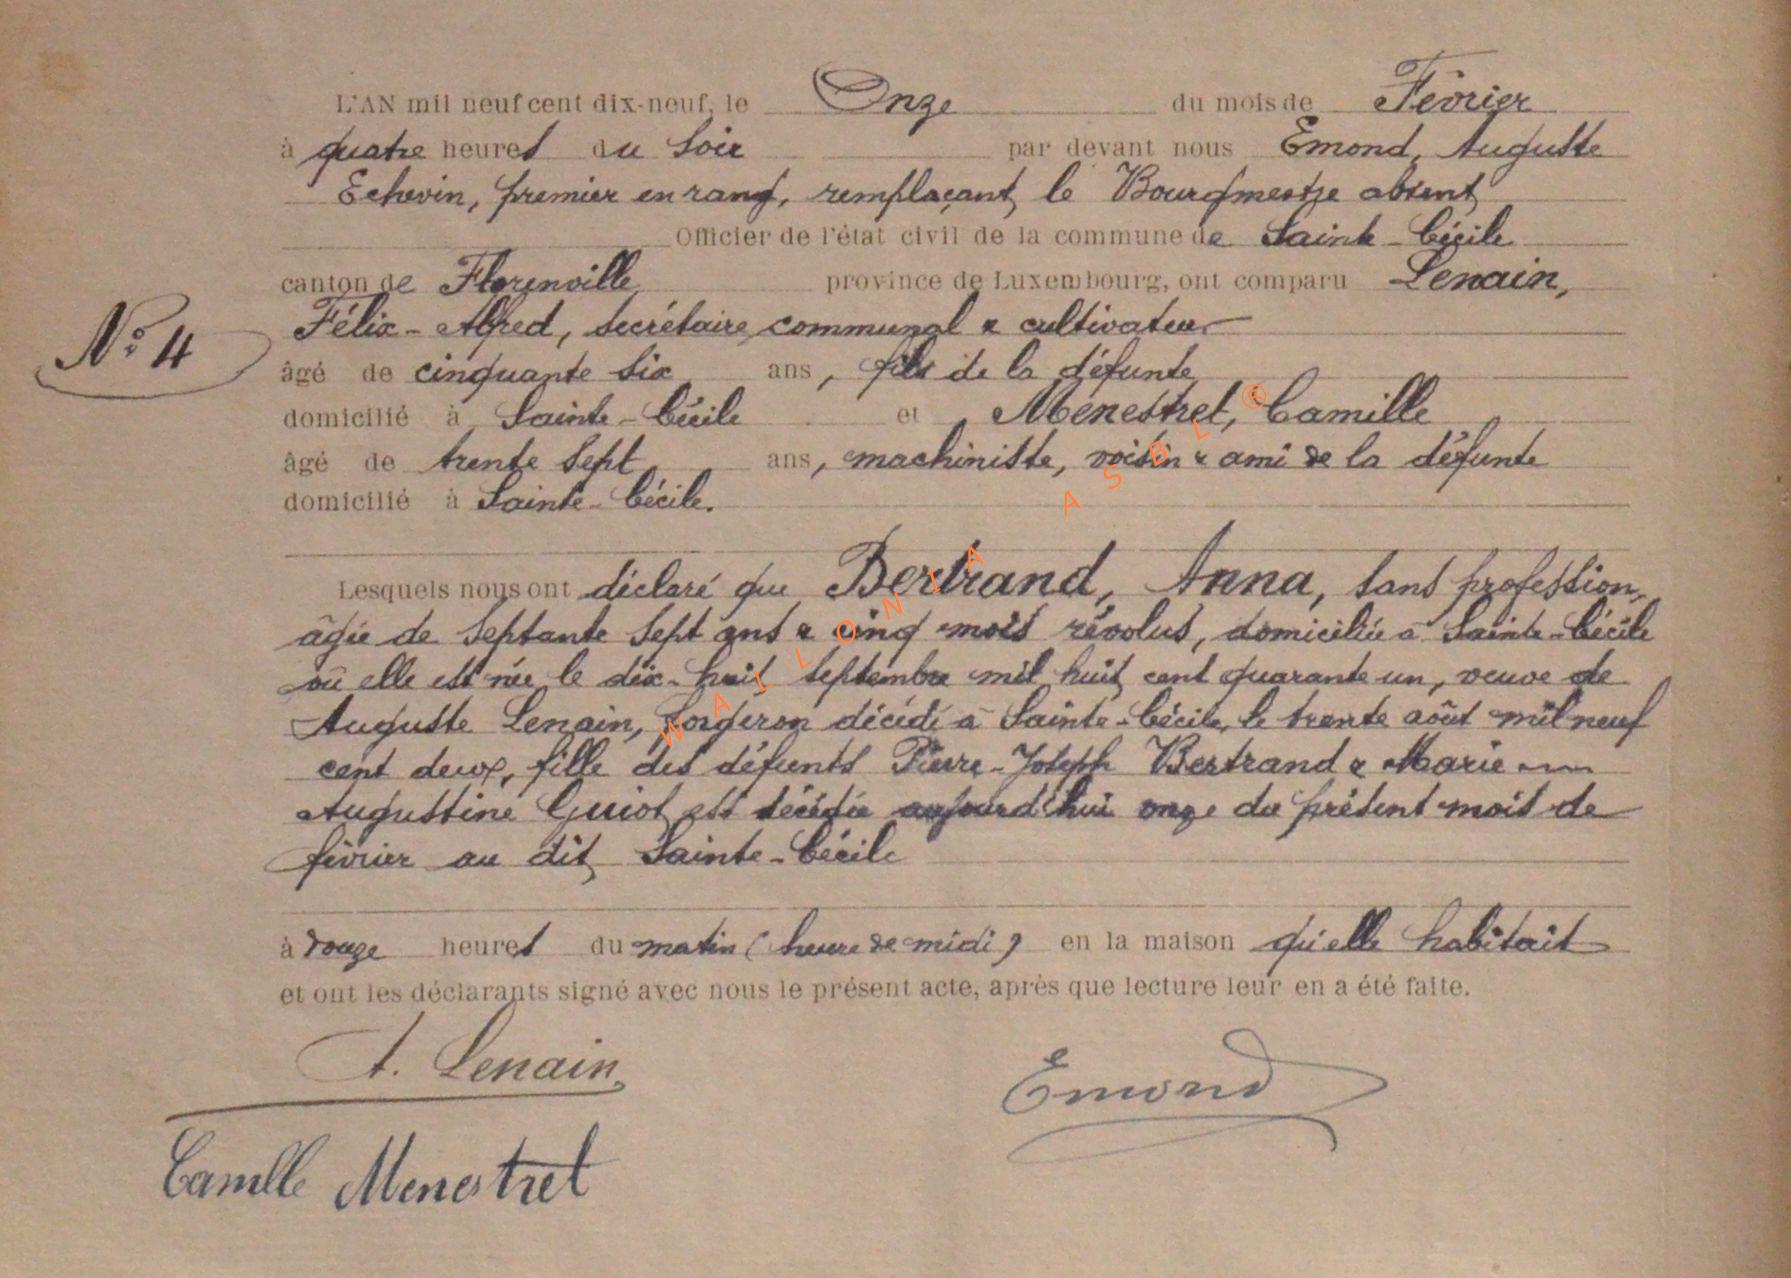 L'AN mil neuf cent dix-neuf, le Onze du mois de Février
à quatre heures du soir par devant nous Emond, Auguste
Echevin, premier en rang, remplaçant le Bourgmestre absent
Officier de l'état civil de la commune de Sainte-Cécile
canton de Florenville province de Luxembourg, ont comparu Lenain,
N° 4
Félix-Alfred, secrétaire communal & cultivateur
âgé de cinquante six ans, fils de la défunte
domicilié à Sainte-Cécile et Menestret, Camille
âgé de trente sept ans, machiniste, voisin & ami de la défunte
domicilié à Sainte-Cécile.
Lesquels nous ont déclaré que Bertrand, Anna, sans profession,
âgée de septante sept ans & cinq mois révolus, domiciliée à Sainte-Cécile
où elle est née le dix-huit septembre mil huit cent quarante un, veuve de
Auguste Lenain, forgeron décédé à Sainte-Cécile, le trente août mil neuf
cent deux, fille des défunts Pierre-Joseph Bertrand & Marie
Augustine Guiot est décédée aujourd'hui onze du présent mois de
février au dit Sainte-Cécile
à douze heures du matin (heure de midi) en la maison qu'elle habitait
et ont les déclarants signé avec nous le présent acte, après que lecture leur en a été faite.
A. Lenain
Emond
Camille Menestret
WALLONIA ASBL ®